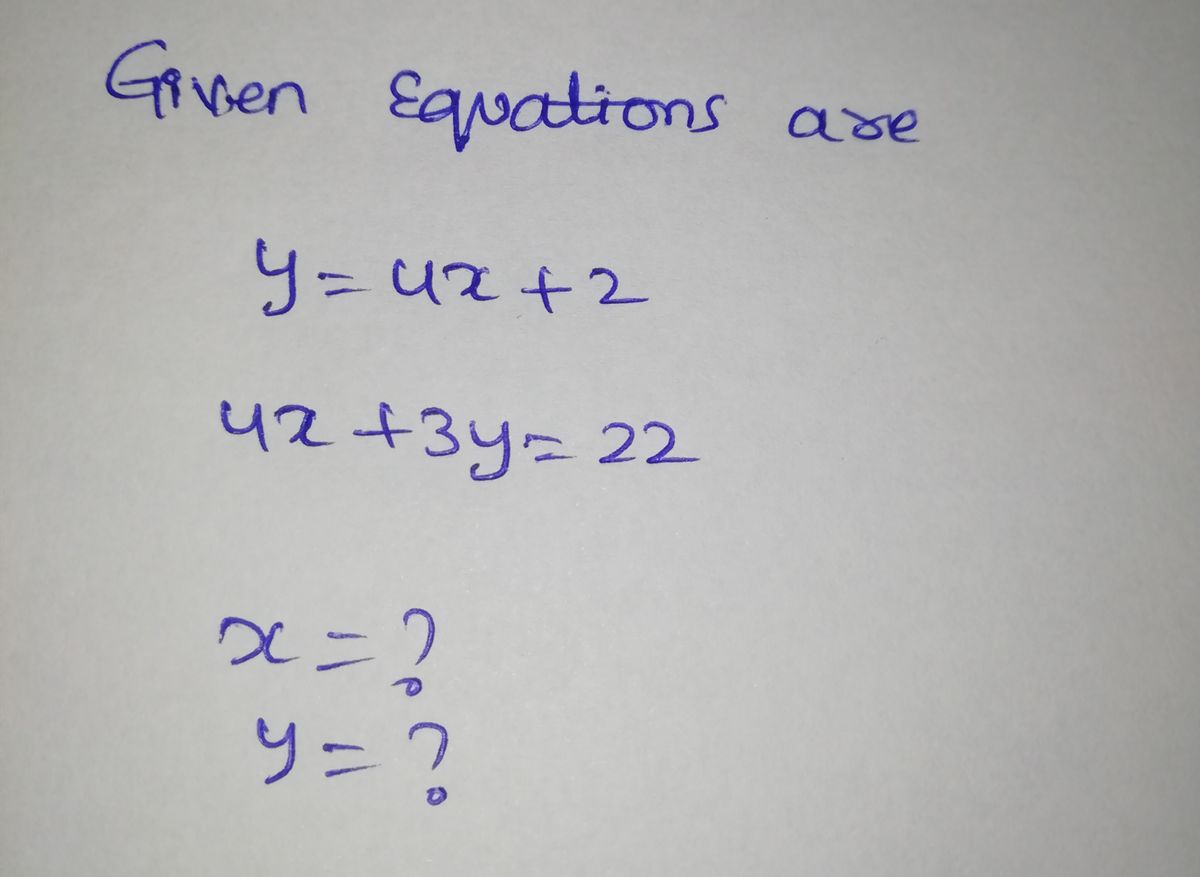 Given Equations are
y = 4x + 2
4x + 3y = 22
x = ?
y = ?